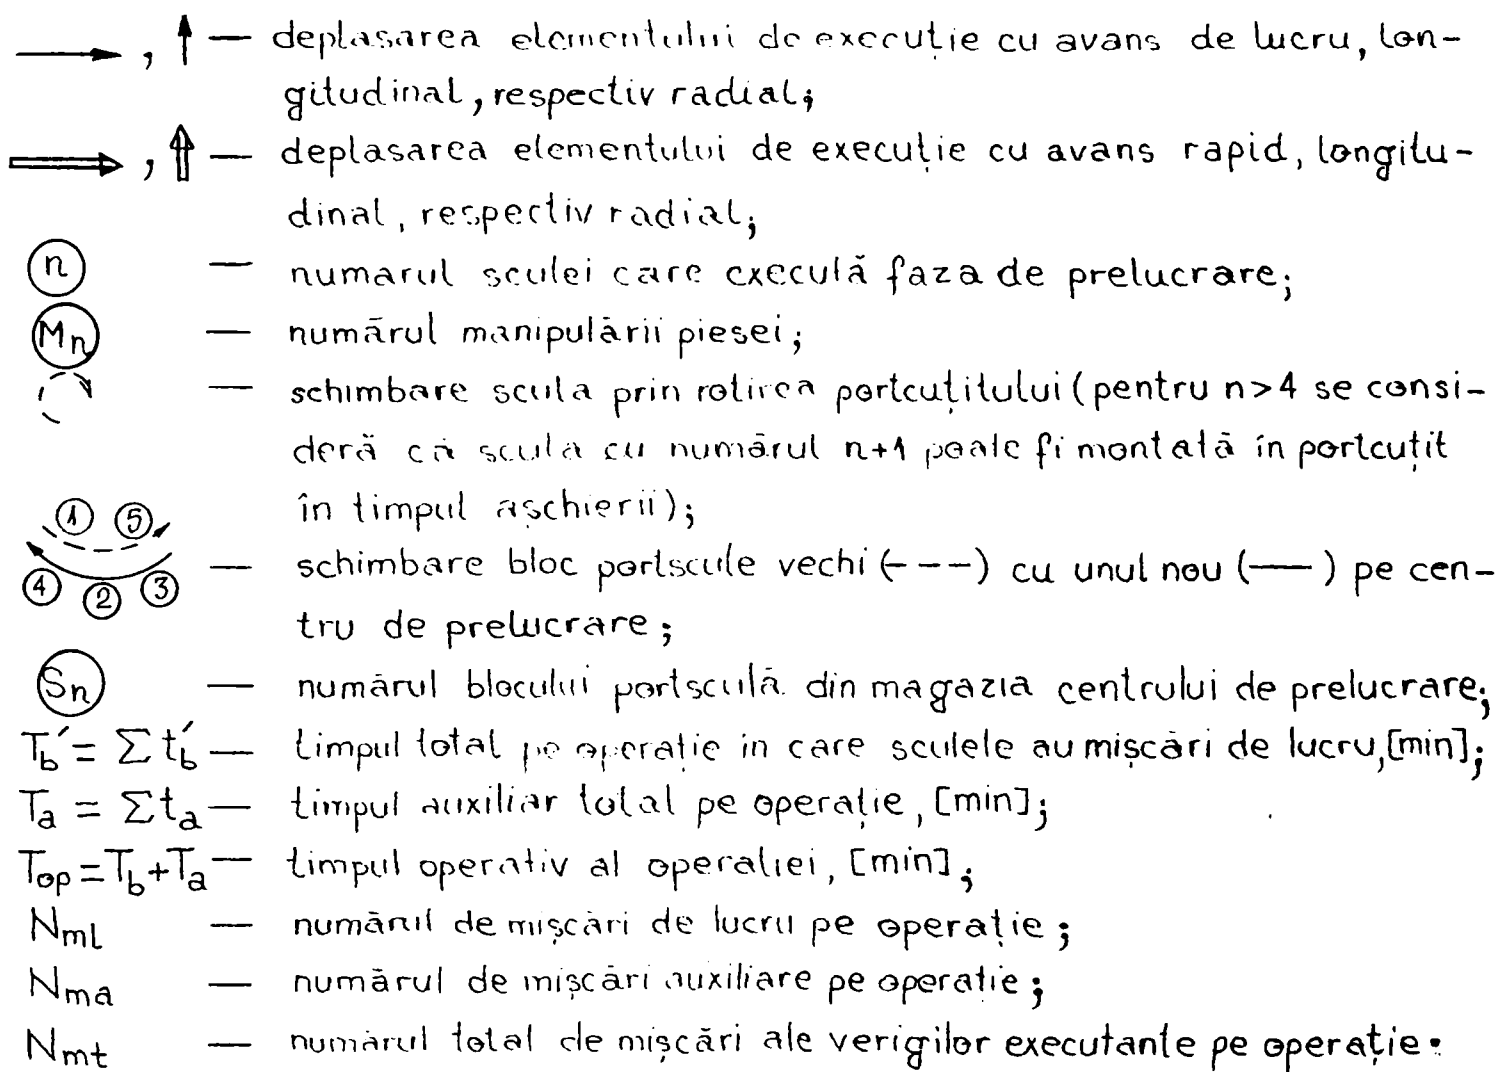 →, ↑ — deplasarea elementului de execuție cu avans de lucru, lon-
gitudinal, respectiv radial;
⇒, ⇑ — deplasarea elementului de execuție cu avans rapid, longitu-
dinal, respectiv radial;
n — numarul sculei care execută faza de prelucrare;
Mn — numărul manipulării piesei;
— schimbare scula prin rotirea portcuțitului (pentru n>4 se consi-
deră că scula cu numărul n+1 poate fi montată în portcuțit
în timpul așchierii);
1 5
— schimbare bloc portscule vechi (---) cu unul nou (—) pe cen-
4 2 3
tru de prelucrare;
Sn — numărul blocului portsculă din magazia centrului de prelucrare;
T_b′ = Σ t_b′ — timpul total pe operație in care sculele au mișcări de lucru, [min];
T_a = Σ t_a — timpul auxiliar total pe operație, [min];
T_op = T_b + T_a — timpul operativ al operației, [min];
N_ml — numărul de mișcări de lucru pe operație;
N_ma — numărul de mișcări auxiliare pe operatie;
N_mt — numărul total de mișcări ale verigilor executante pe operație.